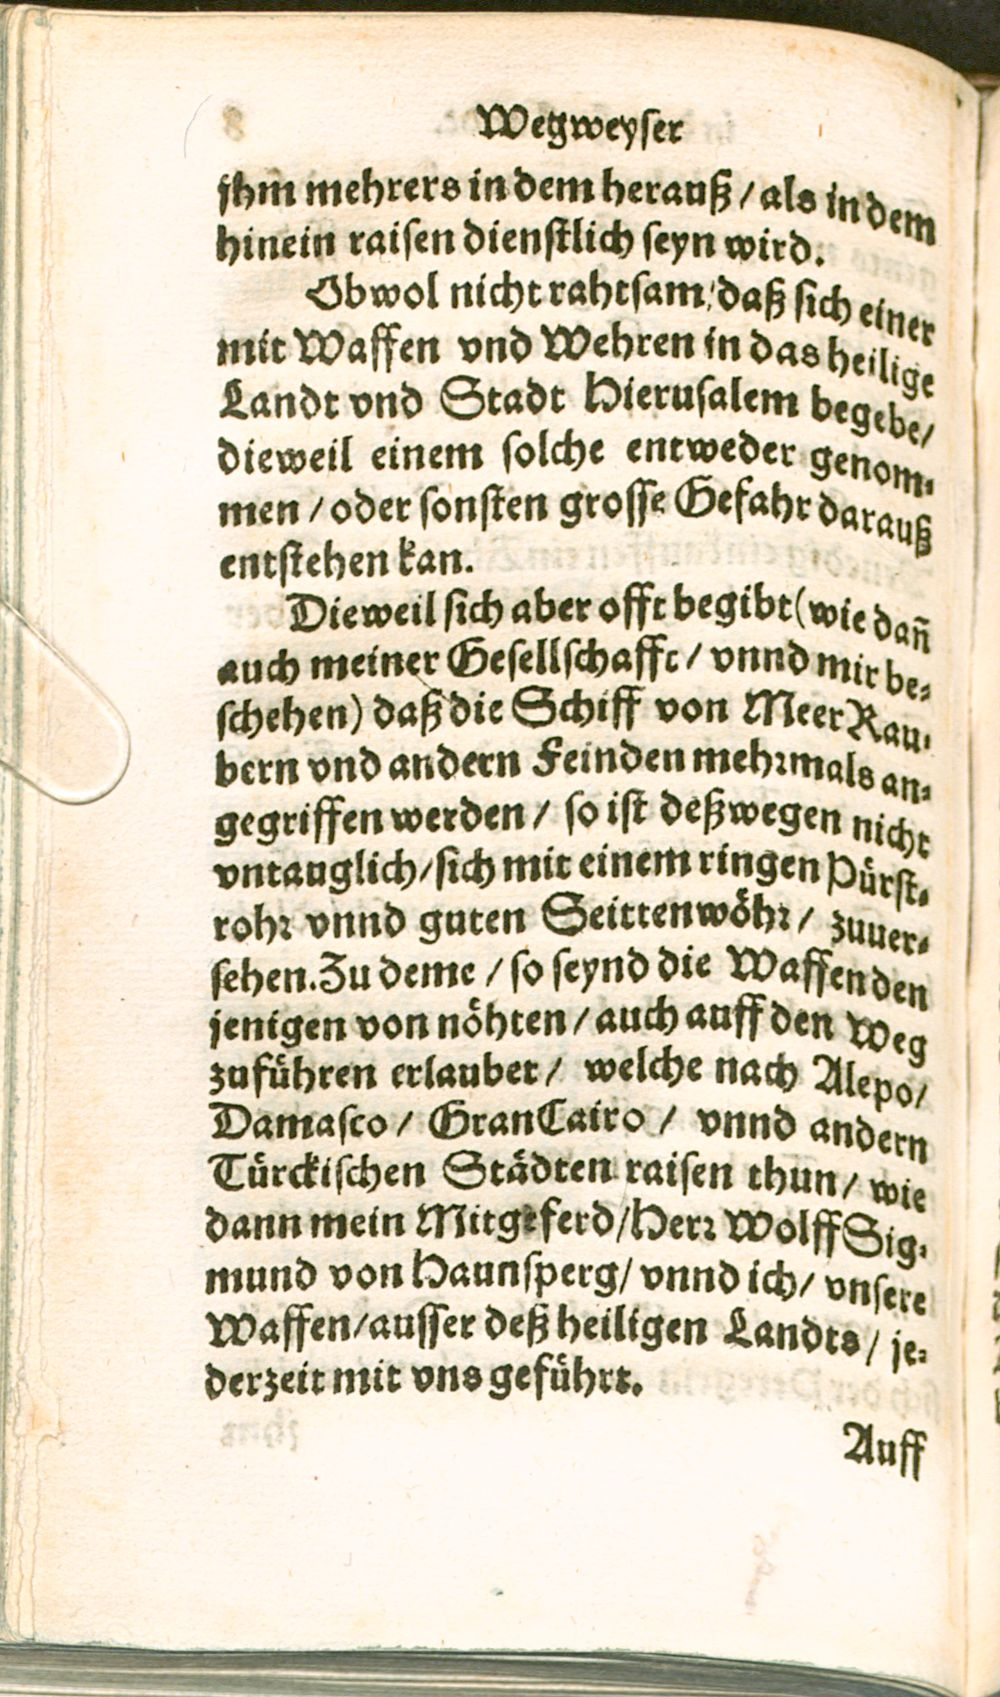 Wegweyser
jhm mehrers in dem herauß / als in dem
hinein raisen dienstlich seyn wird.
Obwol nicht rahtsam / daß sich einer
mit Waffen vnd Wehren in das heilige
Landt vnd Stadt Hierusalem begebe /
dieweil einem solche entweder genom-
men / oder sonsten grosse Gefahr darauß
entstehen kan.
Dieweil sich aber offt begibt (wie dañ
auch meiner Gesellschafft / vnnd mir be-
schehen) daß die Schiff von Meer Rau-
bern vnd andern Feinden mehrmals an-
gegriffen werden / so ist deßwegen nicht
vntauglich / sich mit einem ringen Pürst-
rohr vnnd guten Seittenwöhr / zuuer-
sehen. Zu deme / so seynd die Waffen den
jenigen von nöhten / auch auff den Weg
zuführen erlaubet / welche nach Alepo /
Damasco / Gran Cairo / vnnd andern
Türckischen Städten raisen thun / wie
dann mein Mitgeferd / Herr Wolff Sig-
mund von Haunsperg / vnnd ich / vnsere
Waffen / ausser deß heiligen Landts / je-
derzeit mit vns geführt.
Auff